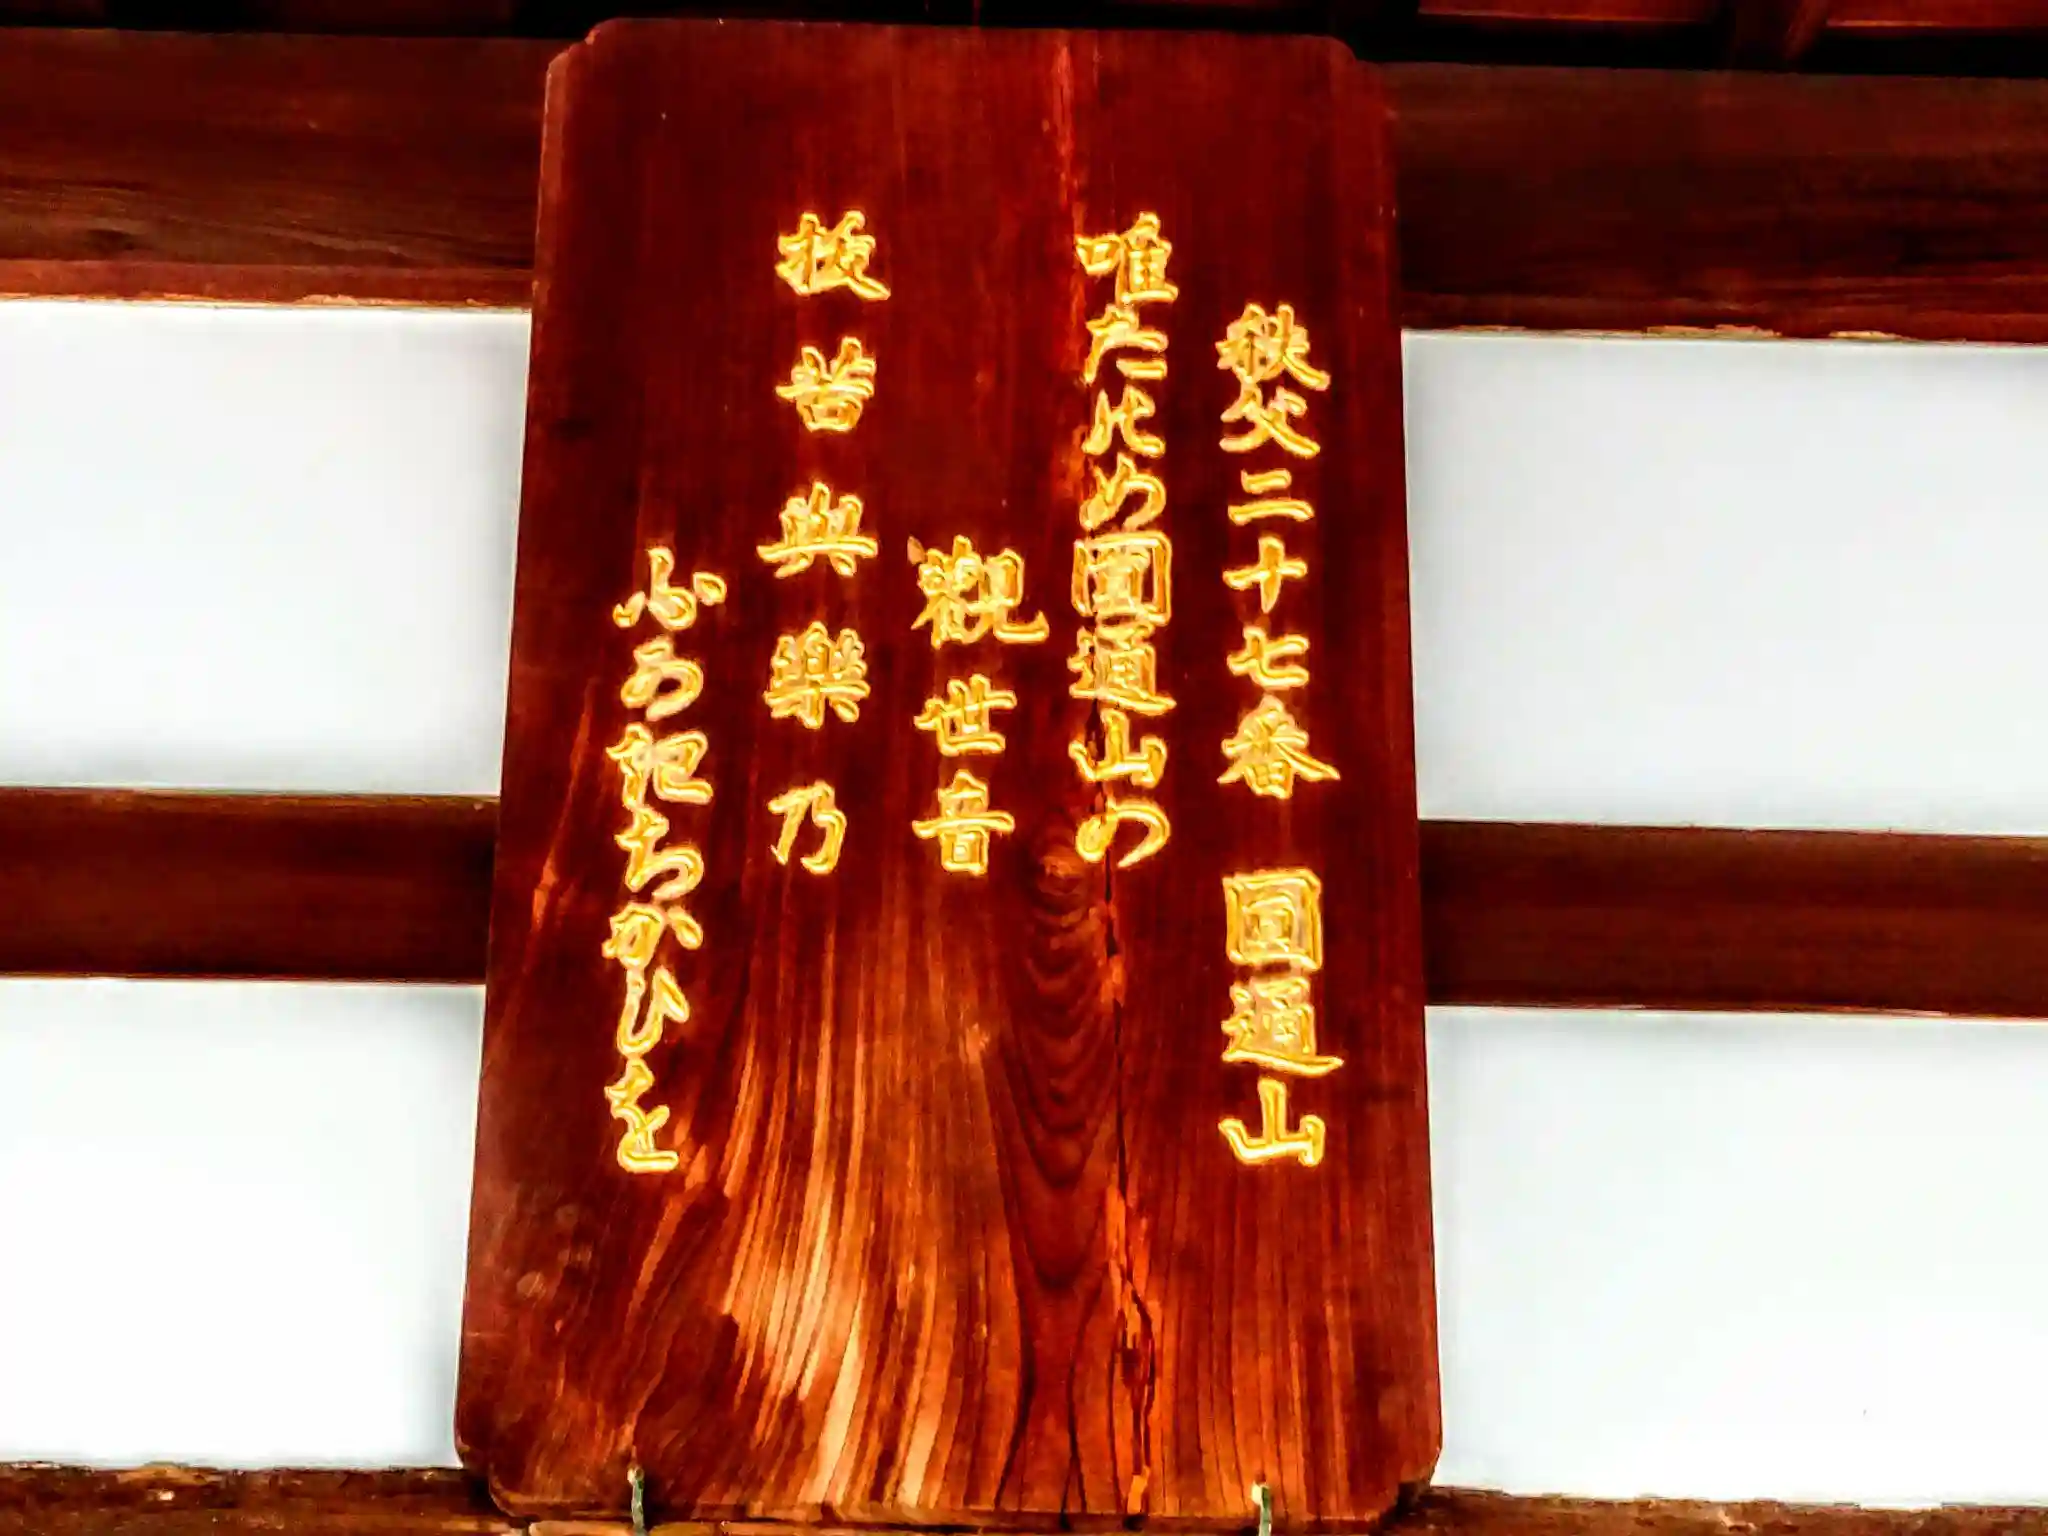 秩父二十七番 圓通山
唯たのめ圓通山の
觀世音
抜苦與樂乃
ふかきちかひを